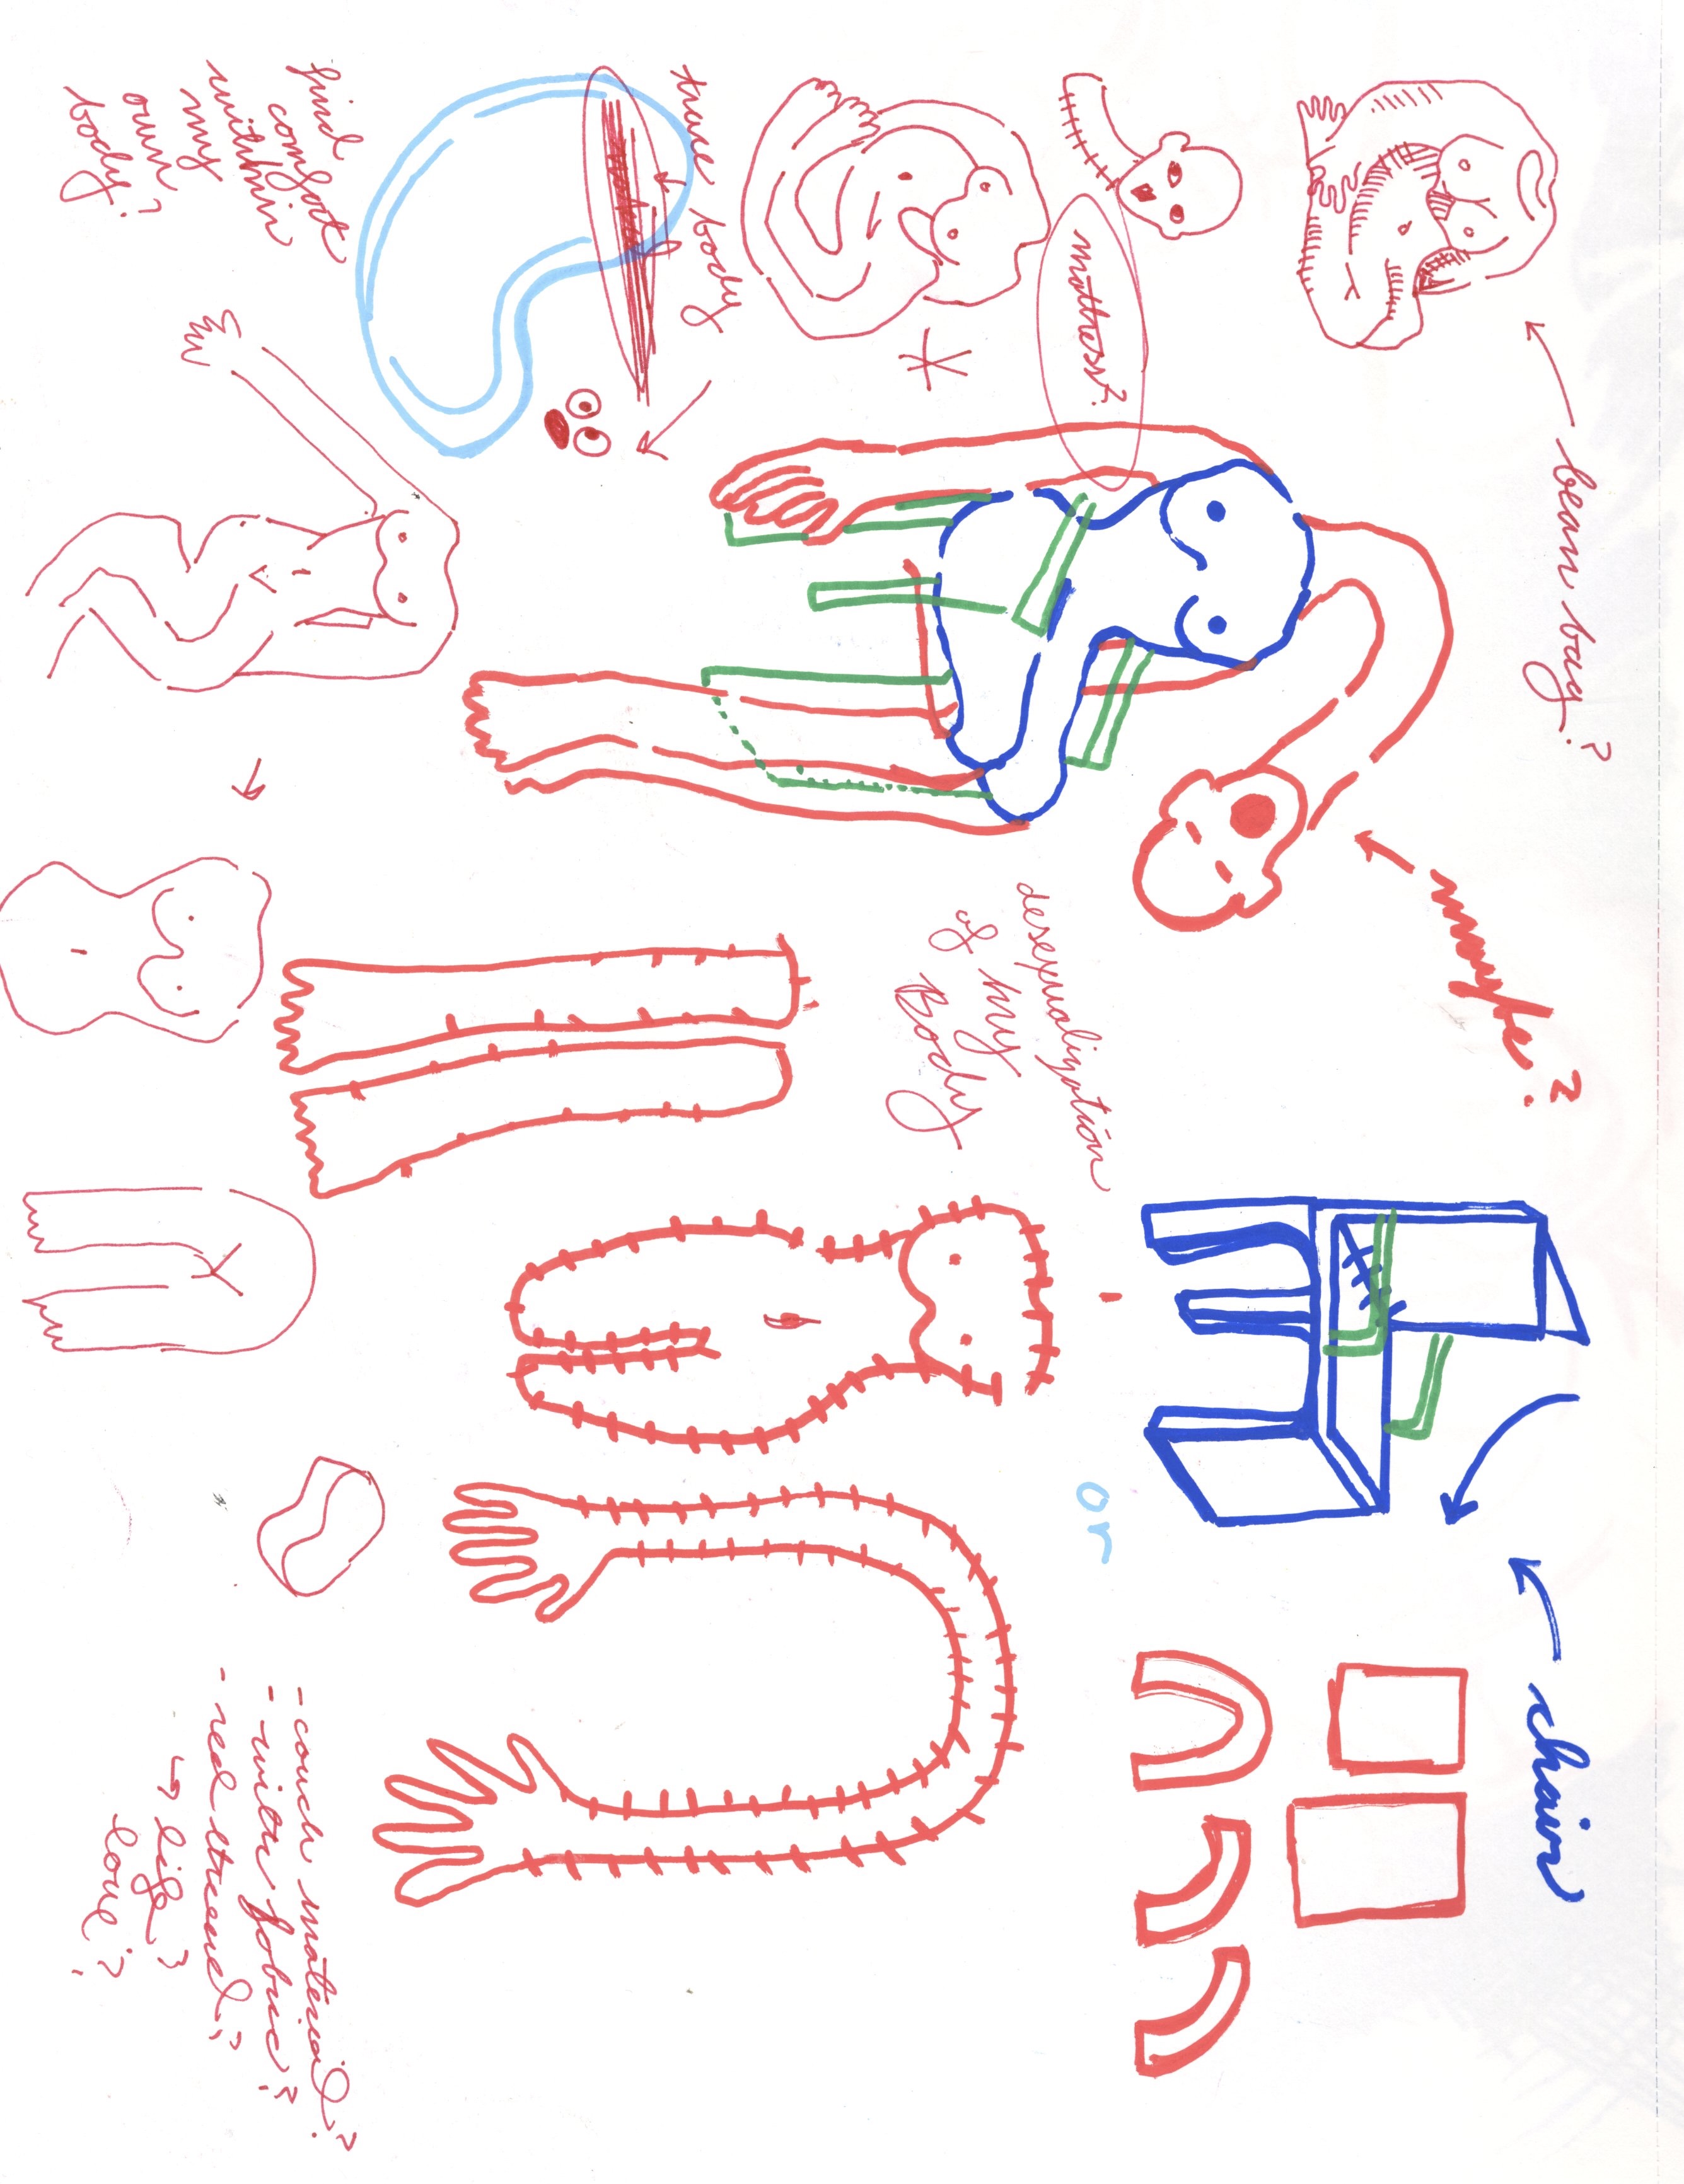 bean bag?
maybe?
chair
mattress?
desexualization
of my
Body
or
trace body
find
comfort
within
my
own
body?
- couch material?
- fabric?
- red thread?
↳ life?
love?